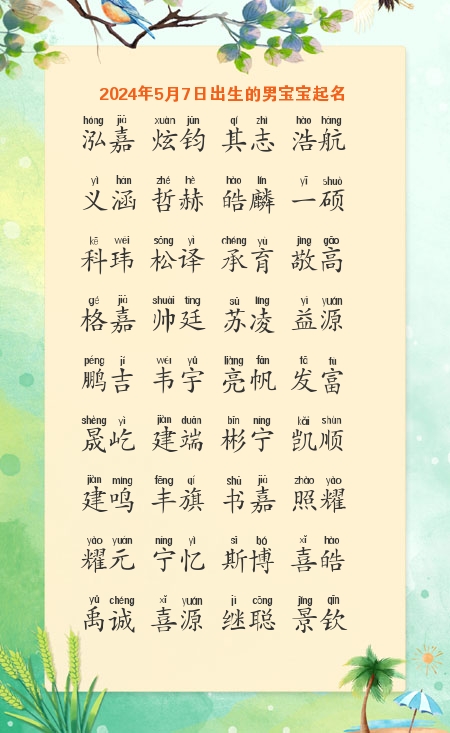 2024年5月7日出生的男宝宝起名
hóng jiā xuàn jūn qí zhì hào háng
泓嘉 炫钧 其志 浩航
yì hán zhé hè hào lín yī shuò
义涵 哲赫 皓麟 一硕
kē wěi sōng yì chéng yù jìng gāo
科玮 松译 承育 敬高
gé jiā shuài tíng sū líng yì yuán
格嘉 帅廷 苏凌 益源
péng jí wéi yǔ liàng fān fā fù
鹏吉 韦宇 亮帆 发富
shèng yì jiàn duān bīn níng kǎi shùn
晟屹 建端 彬宁 凯顺
jiàn míng fēng qí shū jiā zhào yào
建鸣 丰旗 书嘉 照耀
yào yuán níng yì sī bó xǐ hào
耀元 宁忆 斯博 喜皓
yǔ chéng xǐ yuán jì cōng jǐng qīn
禹诚 喜源 继聪 景钦